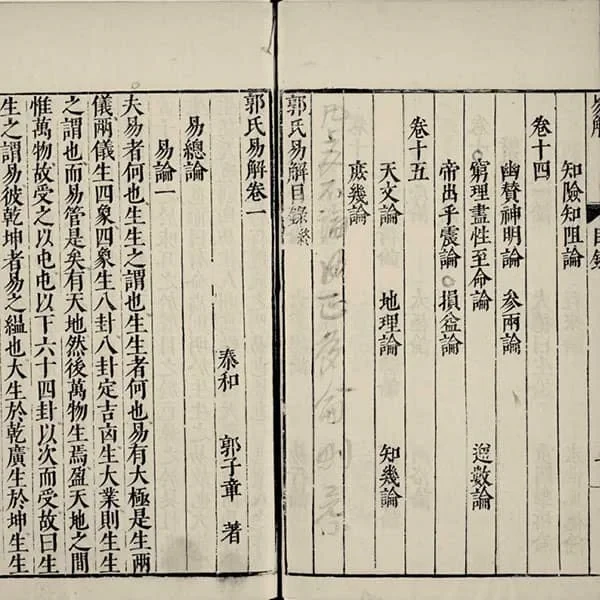 易解 目錄
知險知阻論
卷十四
幽贊神明論 參兩論
窮理盡性至命論 逆數論
帝出乎震論 損益論
卷十五
天文論 地理論 知幾論
庶幾論
郭氏易解目錄終
郭氏易解卷一
泰和 郭子章 著
易總論
易論一
夫易者何也生生之謂也生生者何也易有大極是生兩
儀兩儀生四象四象生八卦八卦定吉凶生大業則生生
之謂也而易管是矣有天地然後萬物生焉盈天地之間
惟萬物故受之以屯屯以下六十四卦以次而受故曰生
生之謂易彼乾坤者易之縕也大生於乾廣生於坤生生